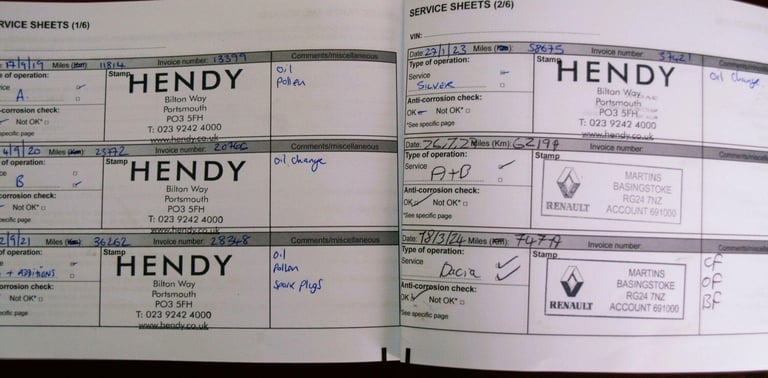 RVICE SHEETS (1/6)
17/9/19 Miles (Km) 11814 Invoice number: 13399 Comments/miscellaneous
e of operation:
Stamp
HENDY
Bilton Way
Portsmouth
PO3 5FH
T: 023 9242 4000
www.hendy.co.uk
Oil
Pollen
A
corrosion check:
Not OK*
ecific page
4/9/20 Miles (Km) Invoice number: Comments/miscellaneous
of operation:
Stamp
HENDY
Bilton Way
Portsmouth
PO3 5FH
T: 023 9242 4000
www.hendy.co.uk
Oil change
B
corrosion check:
Not OK*
specific page
2/9/21 Miles (Km) 36262 Invoice number: 28348 Comments/miscellaneous
of operation:
Stamp
HENDY
Bilton Way
Portsmouth
PO3 5FH
T: 023 9242 4000
www.hendy.co.uk
Oil
Pollen
Spark Plugs
+ ADDITIONS
orrosion check:
Not OK*
pecific page
SERVICE SHEETS (2/6)
VIN:
Date: 27/1/23 Miles (Km): 58675 Invoice number: 37421 Comments/miscellaneous
Type of operation:
Service
SILVER
Stamp
HENDY
Bilton Way
Portsmouth
PO3 5FH
T: 023 9242 4000
www.hendy.co.uk
Oil Change
Anti-corrosion check:
OK Not OK*
*See specific page
Date: Miles (Km): Invoice number: Comments/miscellaneous
Type of operation:
Service
A+B
Stamp
RENAULT
MARTINS
BASINGSTOKE
RG24 7NZ
ACCOUNT 691000
Anti-corrosion check:
OK Not OK*
*See specific page
Date: 18/3/24 Miles (Km): Invoice number: Comments/miscella
Type of operation:
Service
Dacia
Stamp
RENAULT
MARTINS
BASINGSTOKE
RG24 7NZ
ACCOUNT 691000
CF
OF
BF
Anti-corrosion check:
OK Not OK*
*See specific page